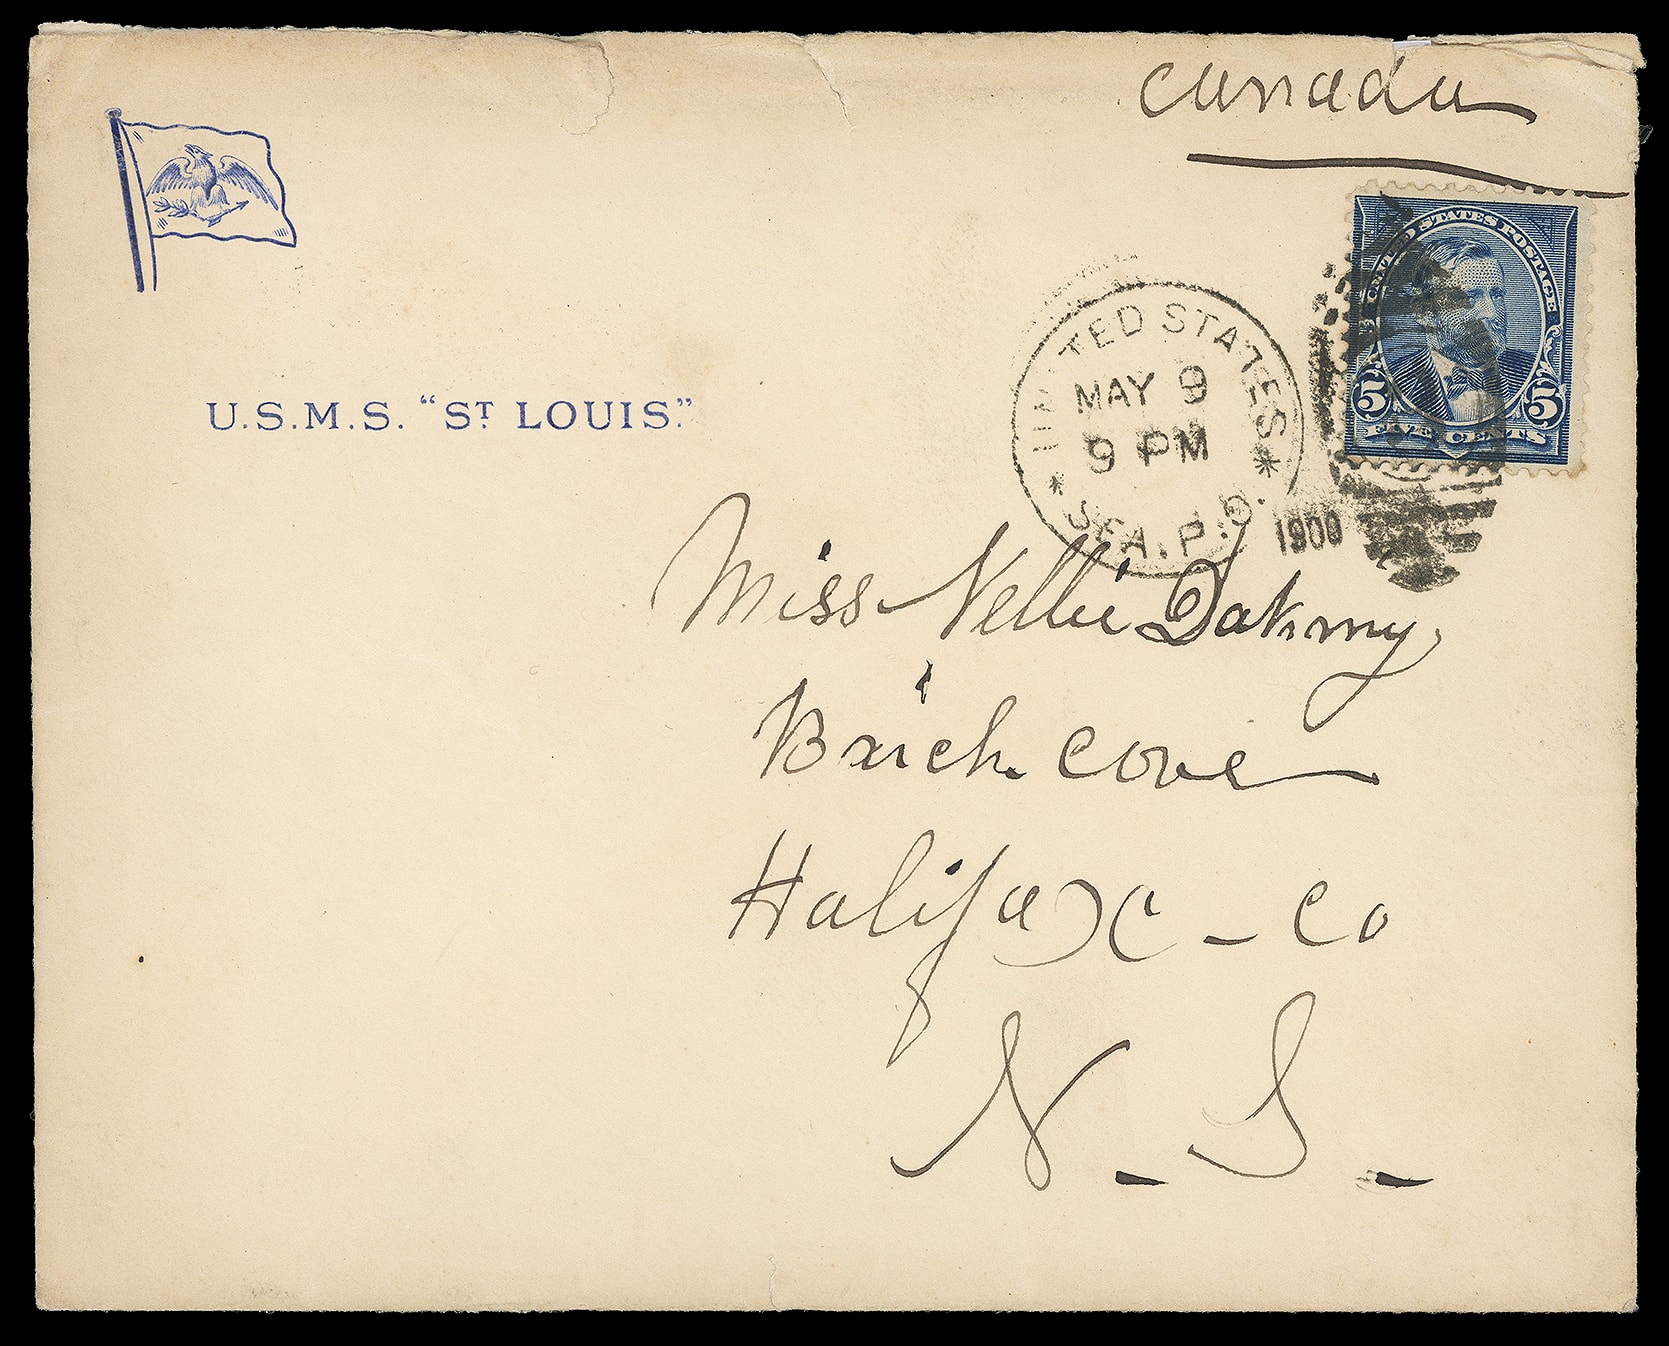 Canada
UNITED STATES POSTAGE
5 5
FIVE CENTS
UNITED STATES
MAY 9
9 PM
* SEA. P. O. *
1900
U.S.M.S. "ST LOUIS."
Miss Nellie
Cove
Halifax - Co
N. S.